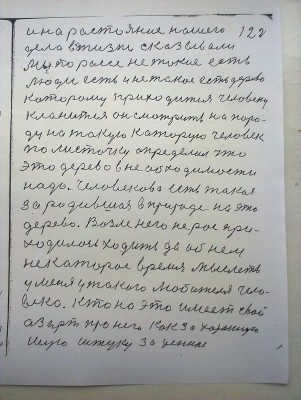 и на растояние нашего 122
дела в жизни сказывали
мы порасе не такие есть
люди есть и не такое есть дерево
каторому приходится человеку
кланится он смотрить на поро-
ду на такую каторую человек
по листочку определил что
это дерево в необходимости
надо. Человекова есть такая
зародившая в природе на это
дерево. Возле него не раз при-
ходилось ходить да об нем
некаторое время мыслеть
у меня у такого любителя чело-
века. Кто на это имеет свой
азарт про него как за хорошую
штуку за